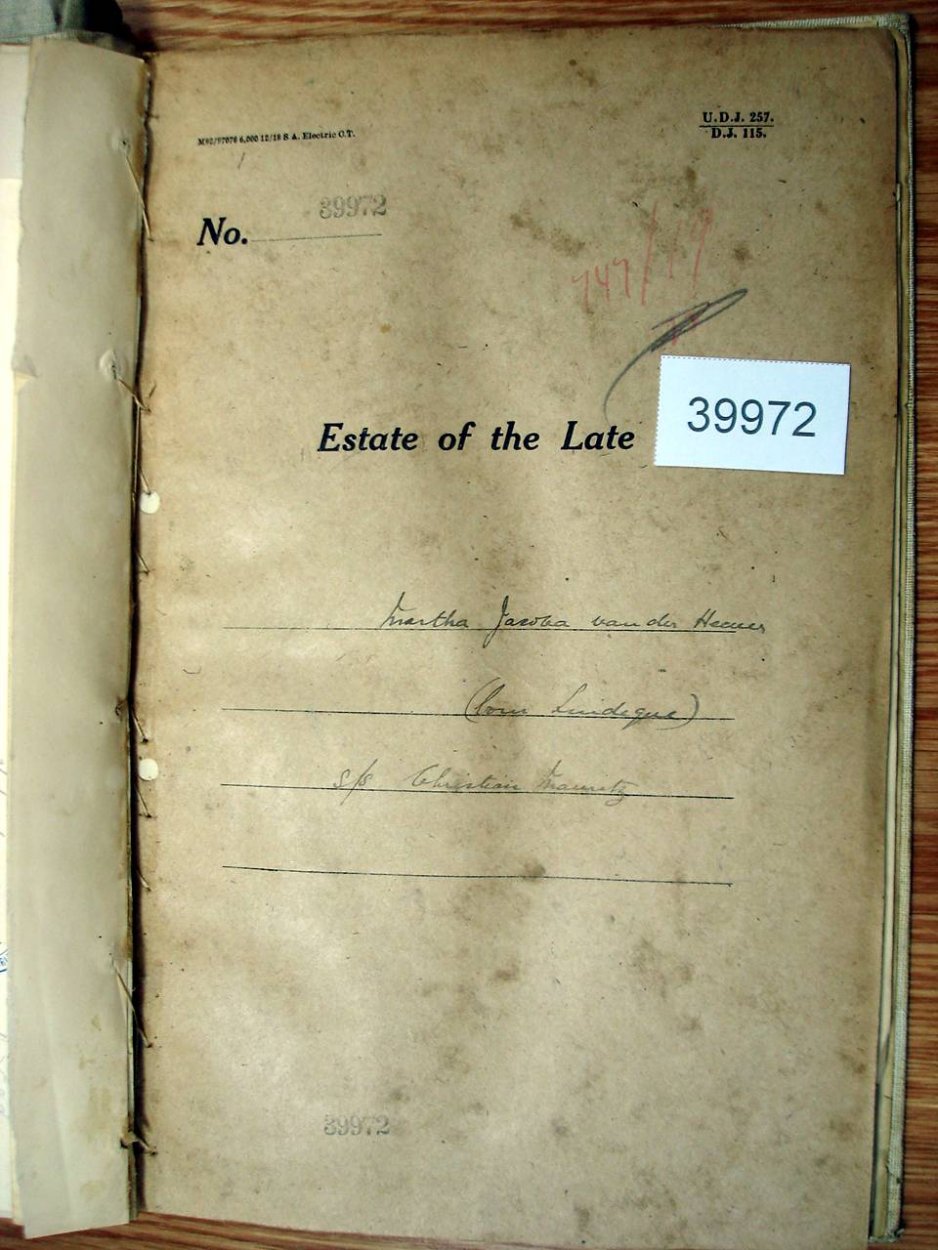 U.D.J. 257.
D.J. 115.
6,000 12/18 S A. Electric C.T.
39972
No.
747/19
39972
Estate of the Late
Martha Jacoba van der Heever
(born Lindeque)
s/s Christian Mauritz
39972